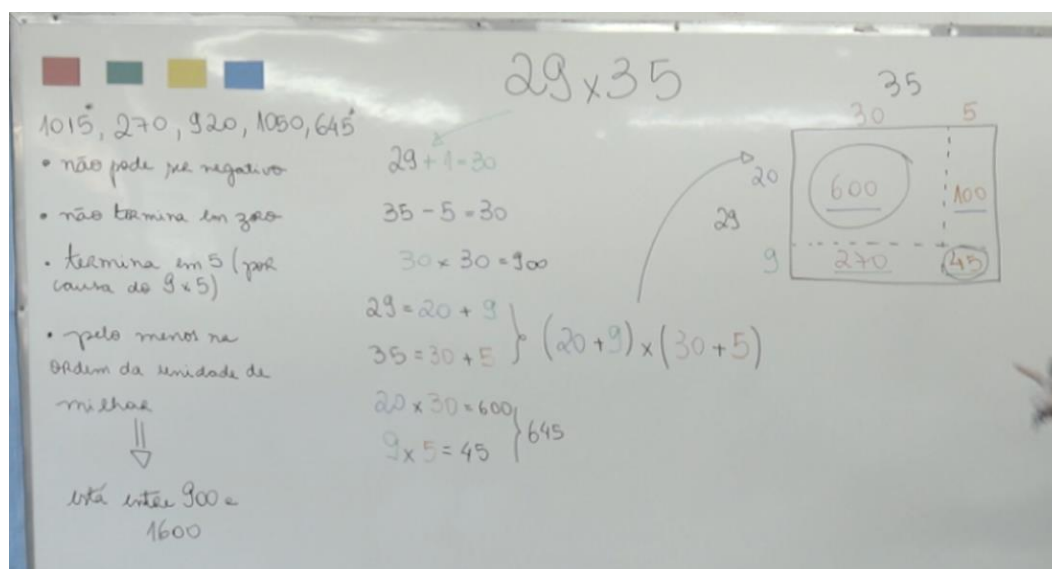 29 x 35
1015, 270, 920, 1050, 645
• não pode ser negativo
• não termina em zero
• termina em 5 (por
causa do 9 x 5)
• pelo menos na
ordem da unidade de
milhar
está entre 900 e
1600
29 + 1 = 30
35 - 5 = 30
30 x 30 = 900
29 = 20 + 9
35 = 30 + 5
(20 + 9) x (30 + 5)
20 x 30 = 600
9 x 5 = 45
645
35
30 5
20 600 100
29
9 270 45